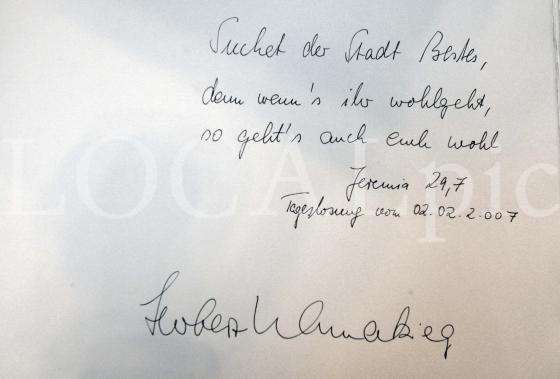 Suchet der Stadt Bestes,
denn wenn's ihr wohlgeht,
so geht's auch euch wohl
LOCALpic
Jeremia 29,7
Tageslosung vom 02.02.2007